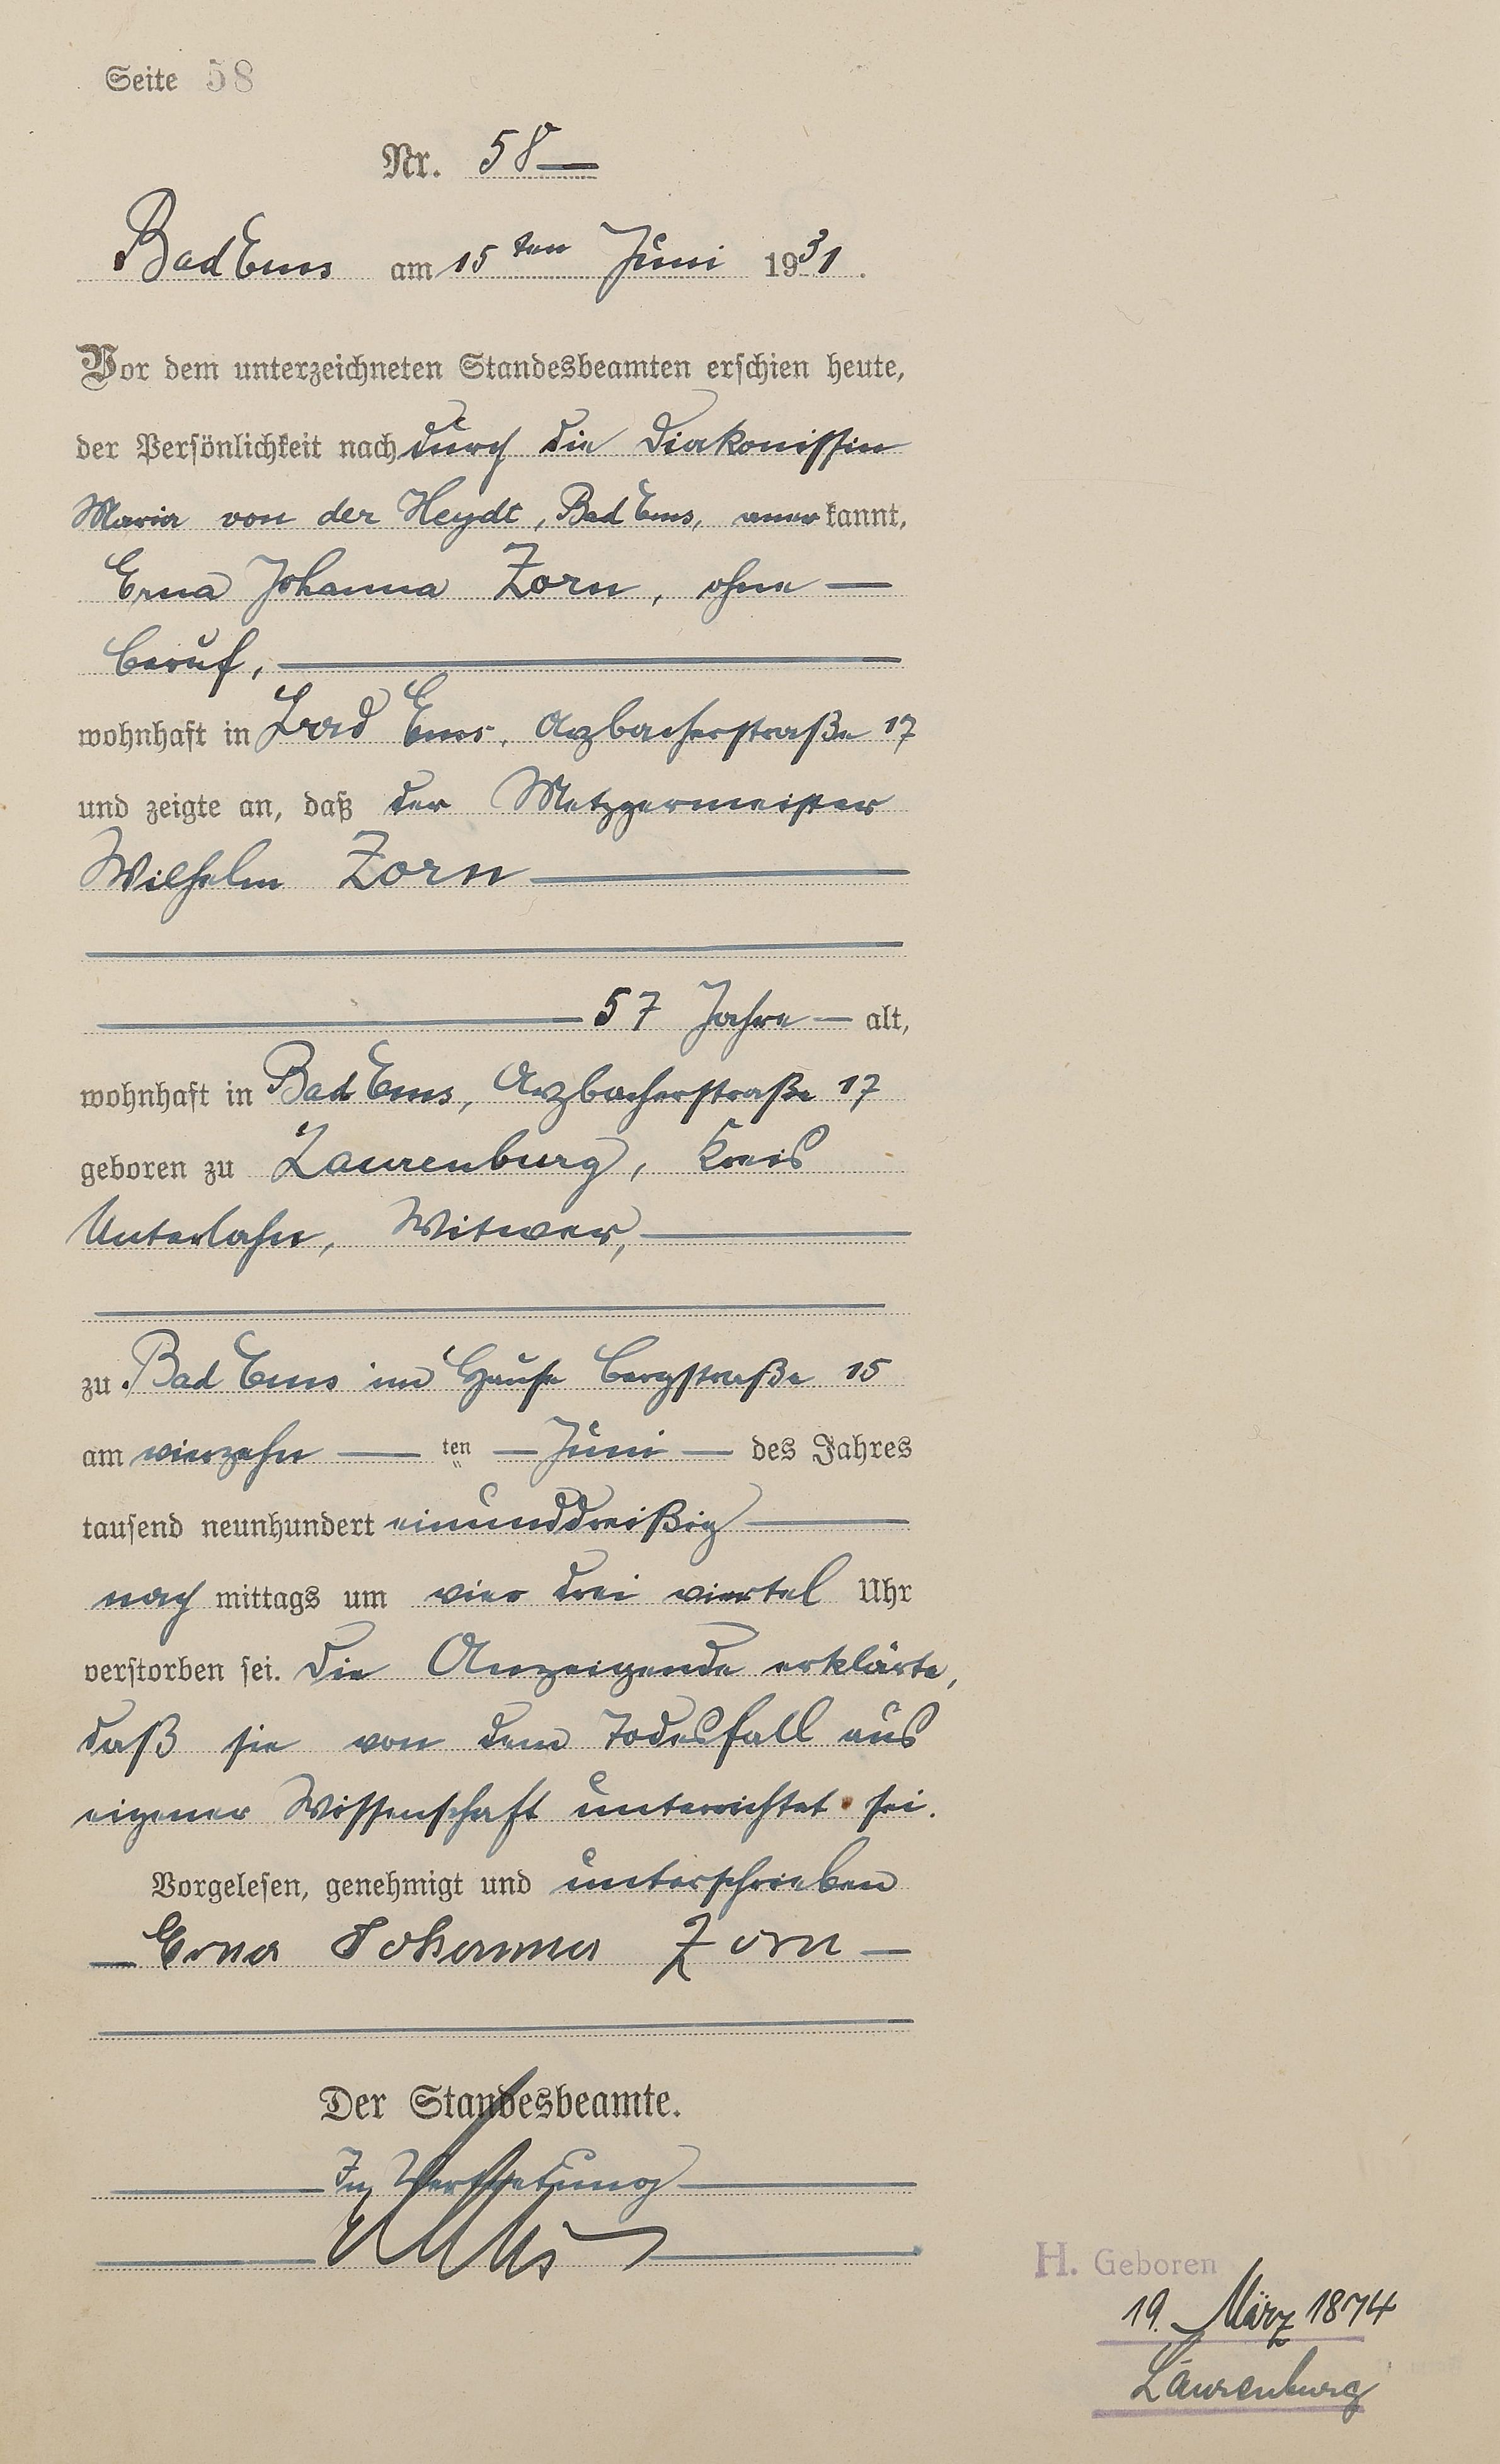 Seite 58
Nr. 58
Bad Ems am 15ten Juni 1931.
Vor dem unterzeichneten Standesbeamten erschien heute,
der Persönlichkeit nach durch die Diakonissin
Maria von der Heydt, Bad Ems, anerkannt,
Erna Johanna Zorn, ohne
Beruf,
wohnhaft in Bad Ems, Arzbacherstraße 17
und zeigte an, daß der Metzgermeister
Wilhelm Zorn
57 Jahre alt,
wohnhaft in Bad Ems, Arzbacherstraße 17
geboren zu Laurenburg, Kreis
Unterlahn, Witwer,
zu Bad Ems im Hause Bergstraße 15
am vierzehnten Juni des Jahres
tausend neunhundert einunddreißig
nachmittags um vier drei viertel Uhr
verstorben sei. Die Anzeigende erklärte,
daß sie von dem Todesfall aus
eigener Wissenschaft unterrichtet sei.
Vorgelesen, genehmigt und unterschrieben
Erna Johanna Zorn
Der Standesbeamte.
In Vertretung
H. Geboren
19. März 1874
Laurenburg